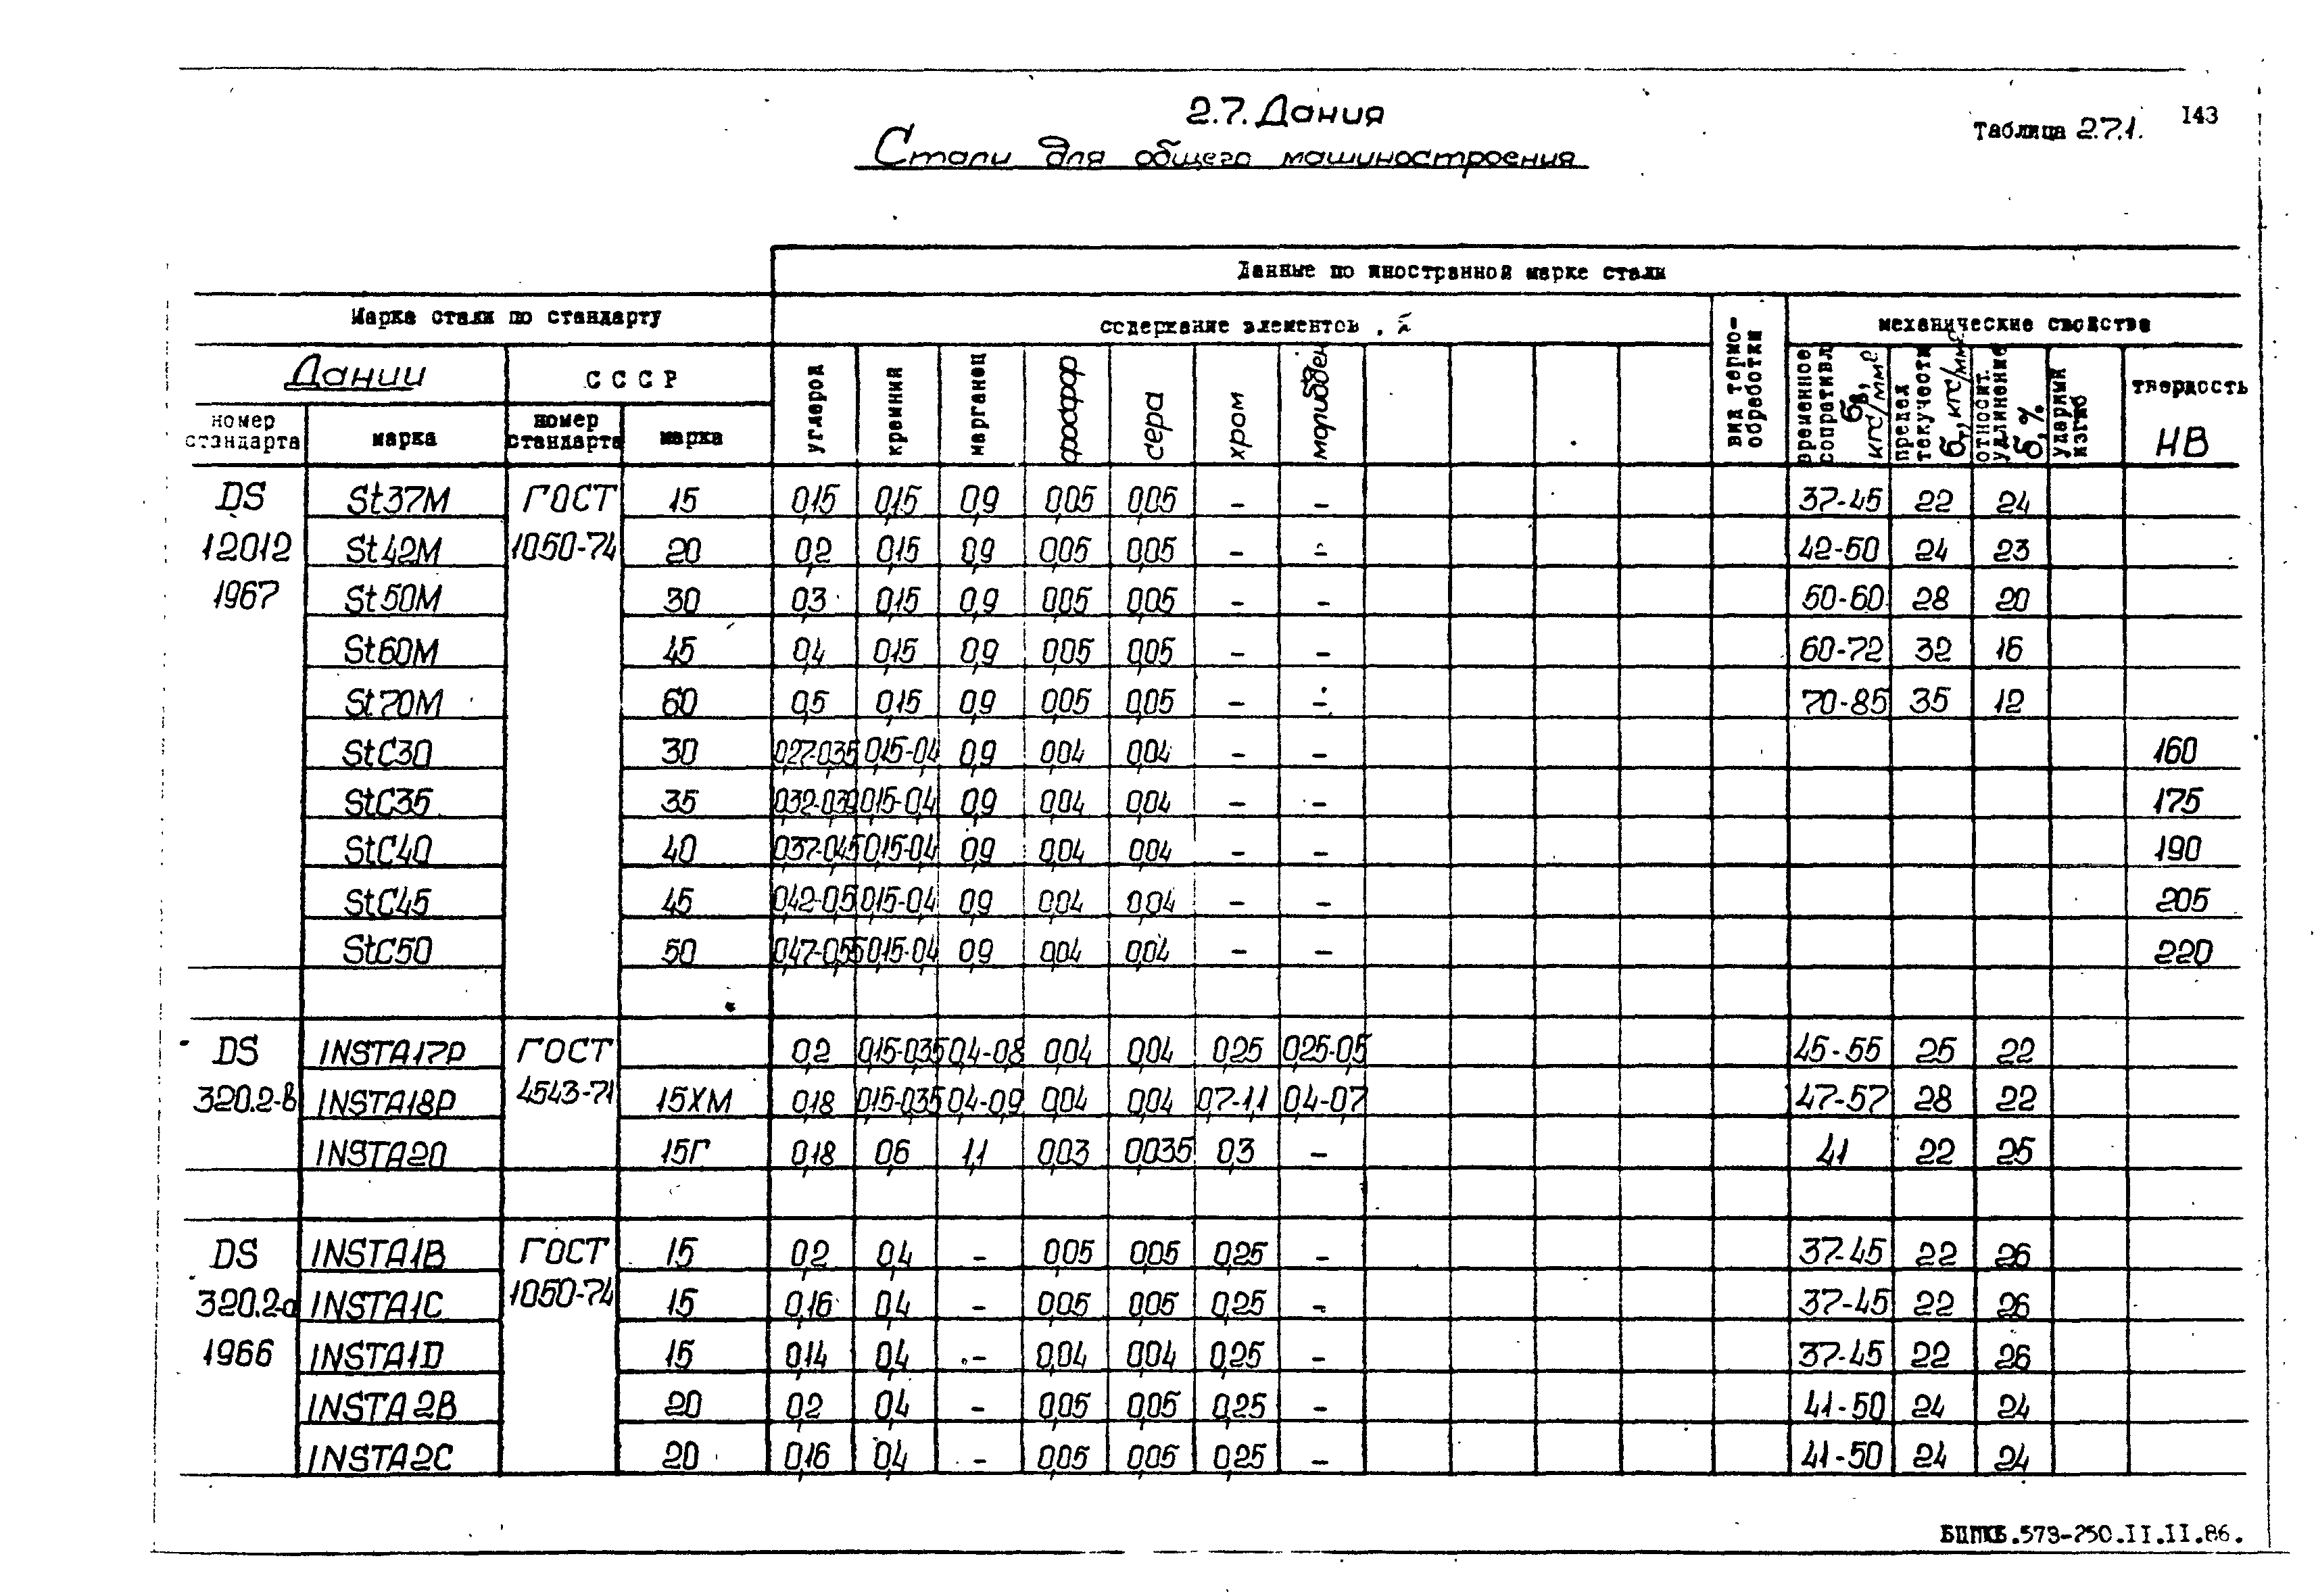 2.7. Дания
Таблица 2.7.1. 143
Стали для общего машиностроения
Данные по иностранной марке стали
Марка стали по стандарту
содержание элементов, %
вид термообработки
механические свойства
Дании
СССР
номер стандарта
марка
номер стандарта
марка
углерод
кремний
марганец
фосфор
сера
хром
молибден
временное сопротивл. бв, кгс/мм²
предел текучести бт, кгс/мм²
относит. удлинение б, %
ударный изгиб
твердость НВ
DS St37M ГОСТ 15 0,15 0,15 0,9 0,05 0,05 - - 37-45 22 24
12012 St42M 1050-74 20 0,2 0,15 0,9 0,05 0,05 - - 42-50 24 23
1967 St50M 30 0,3 0,15 0,9 0,05 0,05 - - 50-60 28 20
St60M 45 0,4 0,15 0,9 0,05 0,05 - - 60-72 32 16
St70M 60 0,5 0,15 0,9 0,05 0,05 - - 70-85 35 12
StC30 30 0,27-0,35 0,15-0,4 0,9 0,04 0,04 - - 160
StC35 35 0,32-0,39 0,15-0,4 0,9 0,04 0,04 - - 175
StC40 40 0,37-0,45 0,15-0,4 0,9 0,04 0,04 - - 190
StC45 45 0,42-0,5 0,15-0,4 0,9 0,04 0,04 - - 205
StC50 50 0,47-0,55 0,15-0,4 0,9 0,04 0,04 - - 220
DS INSTA17P ГОСТ 0,2 0,15-0,35 0,4-0,8 0,04 0,04 0,25 0,25-0,5 45-55 25 22
320.2-в INSTA18P 4543-71 15ХМ 0,18 0,15-0,35 0,4-0,9 0,04 0,04 0,7-1,1 0,4-0,7 47-57 28 22
INSTA20 15Г 0,18 0,6 1,1 0,03 0,035 0,3 - 41 22 25
DS INSTA1B ГОСТ 15 0,2 0,4 - 0,05 0,05 0,25 - 37-45 22 26
320.2-а INSTA1C 1050-74 15 0,16 0,4 - 0,05 0,05 0,25 - 37-45 22 26
1966 INSTA1D 15 0,14 0,4 - 0,04 0,04 0,25 - 37-45 22 26
INSTA2B 20 0,2 0,4 - 0,05 0,05 0,25 - 41-50 24 24
INSTA2C 20 0,16 0,4 - 0,05 0,05 0,25 - 41-50 24 24
БПМКБ.573-250.II.II.86.